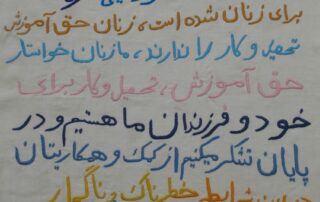 برای زنان شده است، زنان حق آموزش
تحصیل و کار را ندارند، ما زنان خواستار
حق آموزش، تحصیل و کار برای
خود و فرزندان ما هستیم و در
پایان تشکر میکنیم از کمک و همکاریتان
شرایط خطرناک و ناگوار